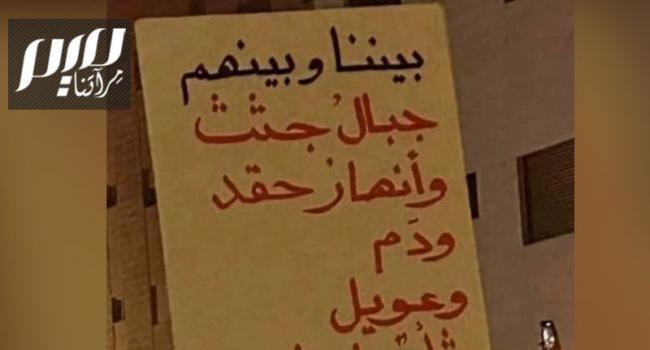 ميم
مِرآتنا
بيننا وبينهم
جبالُ جثث
وأنهارُ حقد
ودَم
وعويل